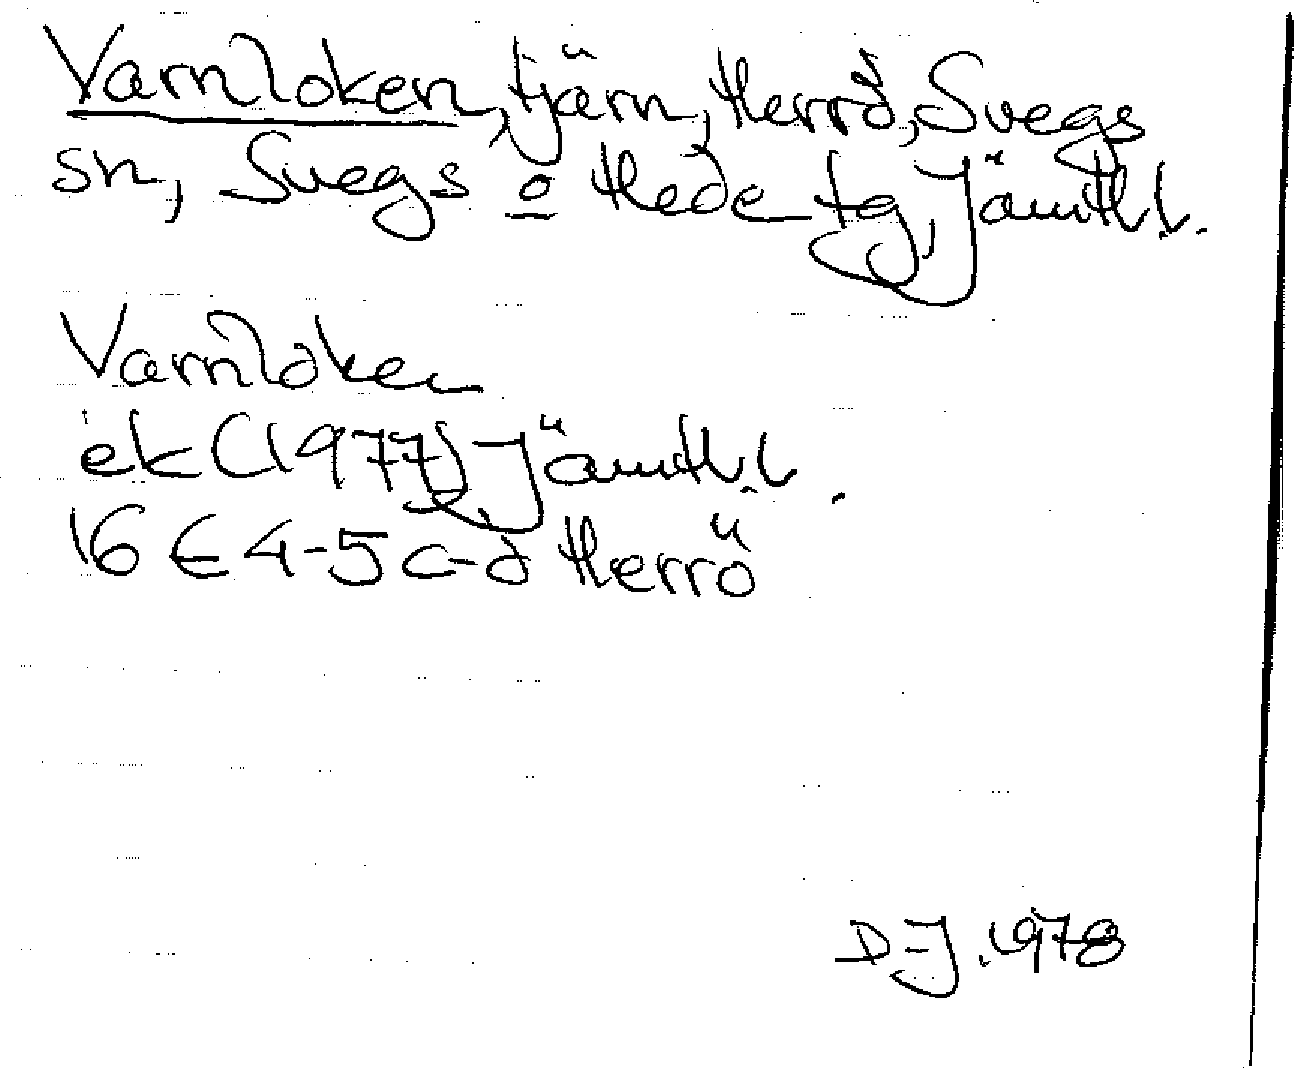 Varnloken, tjärn, Herrö, Svegs
sn, Svegs o Hede tg, Jämtl.l.
Varnloken
ek (1977) Jämtl.l.
16 E 4-5 c-d Herrö
D-J. 1978